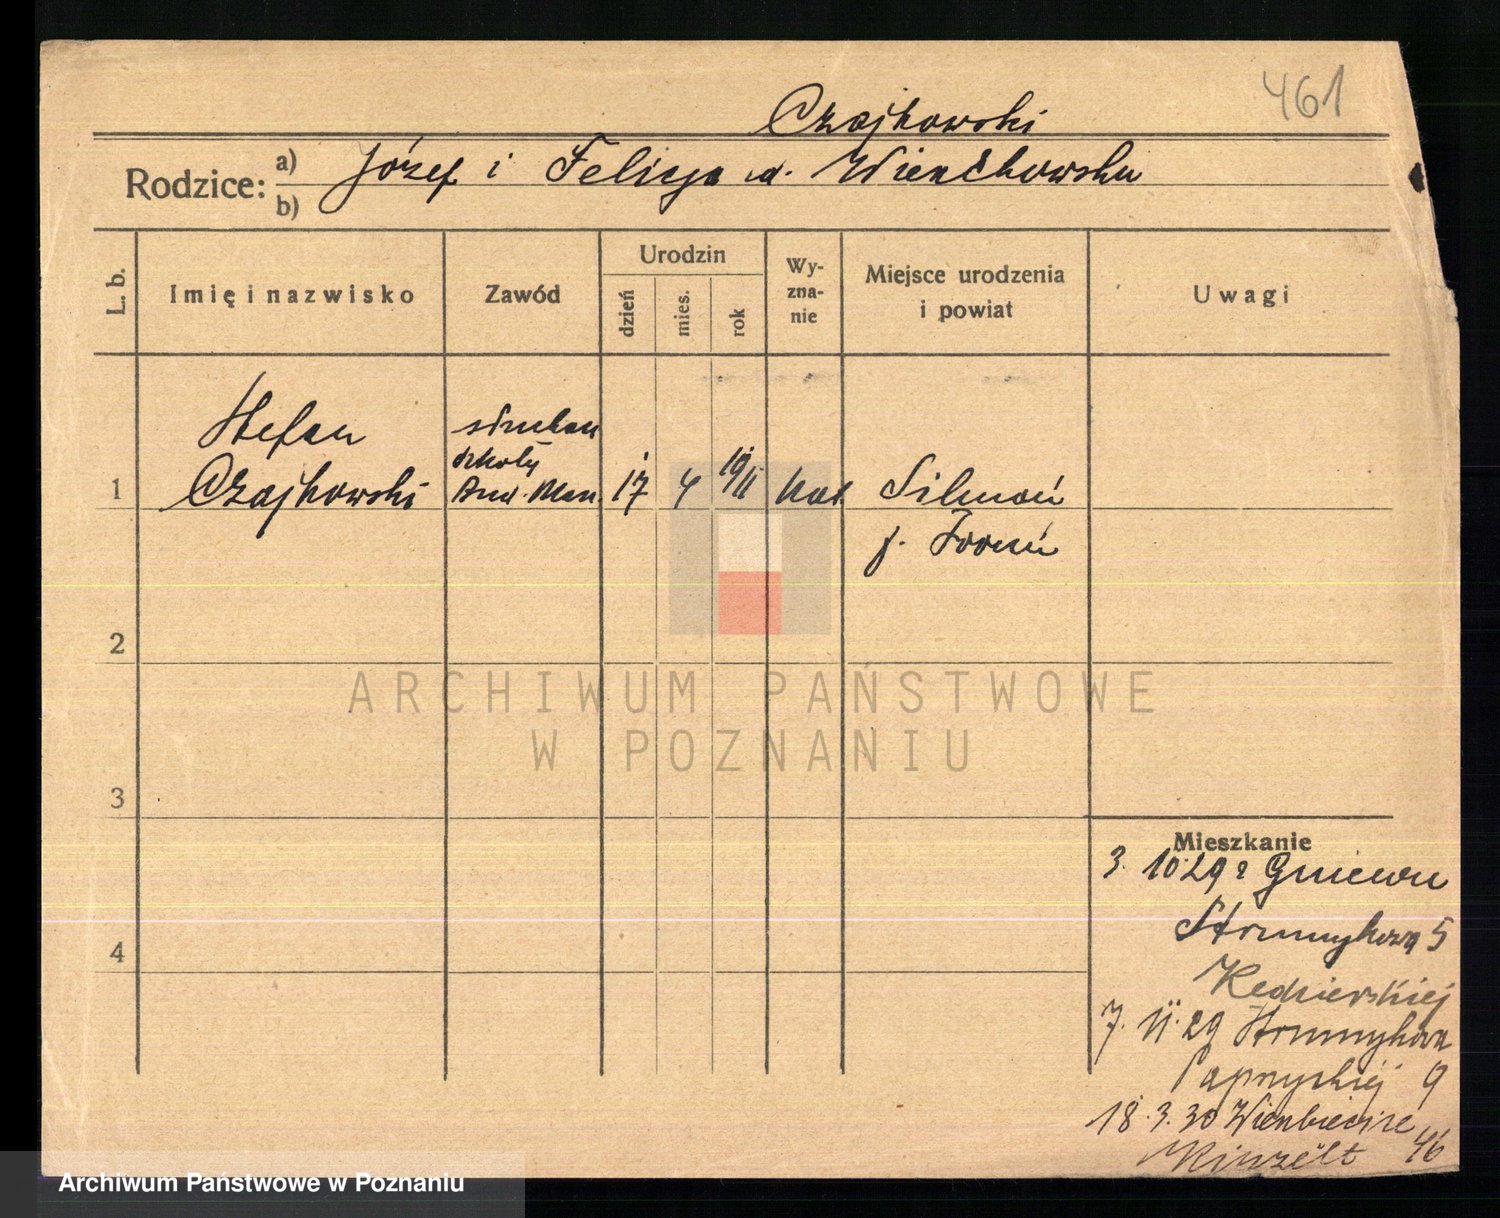 461
Czajkowski
Rodzice: a) b) Józef i Felicja
L. b. Imię i nazwisko Zawód Urodzin dzień mies. rok Wy-zna-nie Miejsce urodzenia i powiat Uwagi
1 Stefan Czajkowski szkoły 17 4 1911 kat Silmoń
2
3
4
Mieszkanie
3. 10 29 r Gniewu
Strumykowa 5
Kedzierskiej
7. 11. 29 Strumykowa
9
18. 3. 30
46
ARCHIWUM PAŃSTWOWE
W POZNANIU
Archiwum Państwowe w Poznaniu